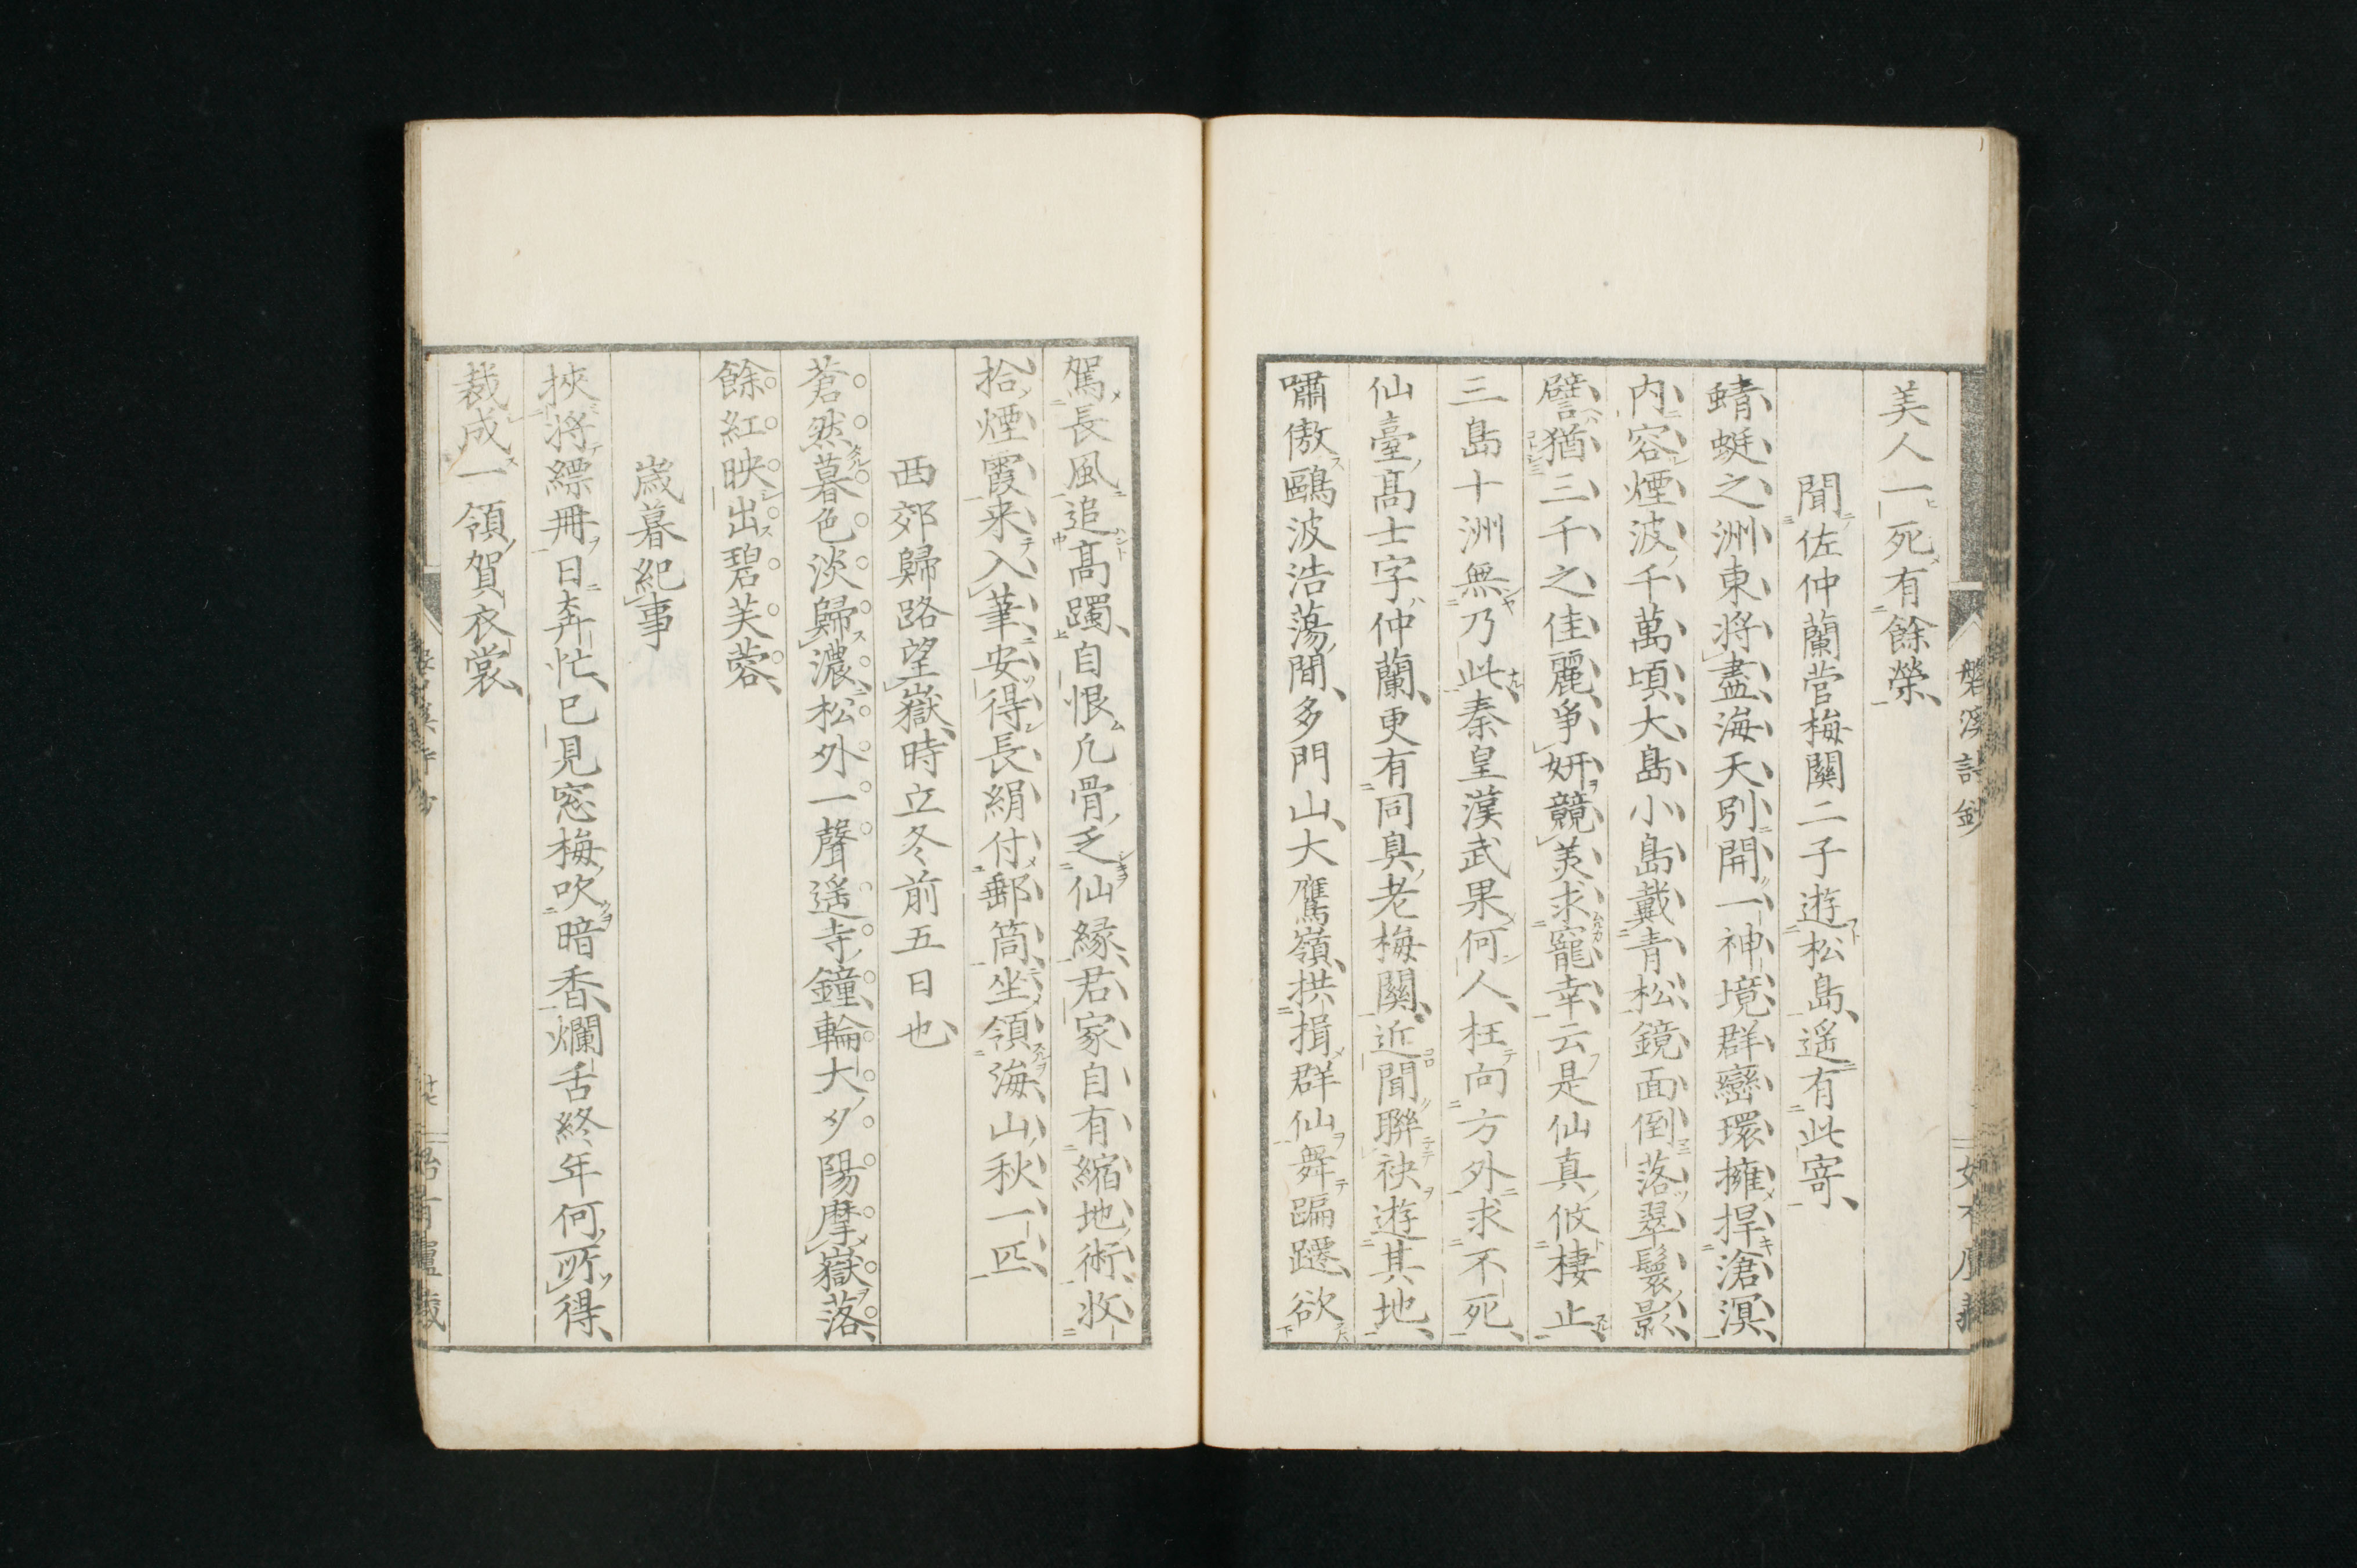 美人一死有餘榮
聞佐仲蘭菅梅關二子遊松島遥有此寄
蜻蜓之洲東將盡海天別開一神境群巒環擁捍滄溟
内容煙波千萬頃大島小島戴青松鏡面倒落翠鬟影
譬猶三千之佳麗爭妍競美求寵幸云是仙真攸棲止
三島十洲無乃此秦皇漢武果何人枉向方外求不死
仙臺髙士字仲蘭更有同臭老梅關近聞聯袂遊其地
嘯傲鷗波浩蕩間多門山大鷹嶺拱揖群仙舞蹁躚欲
駕長風追髙躅自恨凡骨乏仙縁君家自有縮地術收
拾煙霞来入筆安得長絹付郵筒坐領海山秋一匹
西郊歸路望嶽時立冬前五日也
蒼然暮色淡歸濃松外一聲遥寺鐘輪大夕陽摩嶽落
餘紅映出碧芙蓉
歳暮紀事
挾將縹冊日奔忙已見窓梅吹暗香爛舌終年何所得
裁成一領賀衣裳
磐溪詩鈔